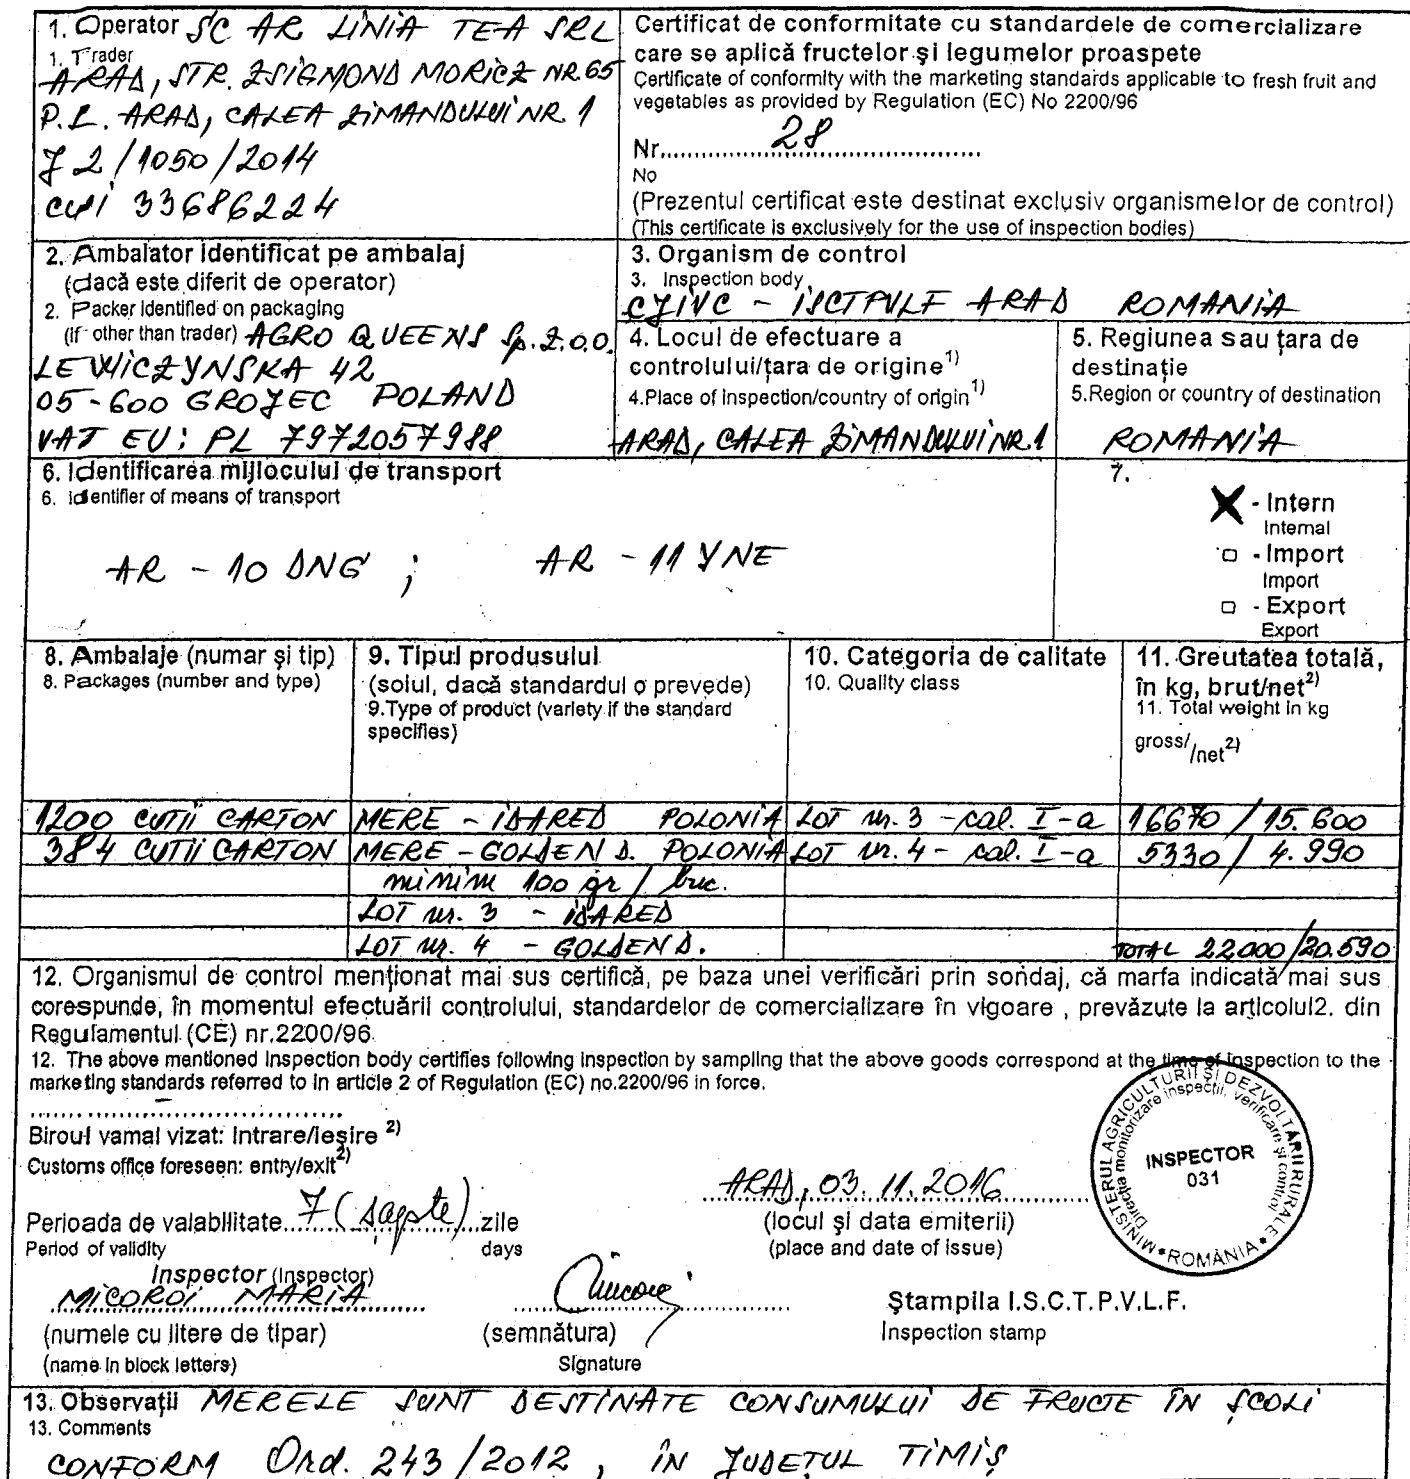 1. Operator SC AR LINIA TEA SRL
1. Trader
ARAD, STR. ZSIGMOND MORICZ NR.65
P.L. ARAD, CALEA ZIMANDULUI NR. 1
J 2/1050/2014
CUI 33686224
Certificat de conformitate cu standardele de comercializare
care se aplică fructelor și legumelor proaspete
Certificate of conformity with the marketing standards applicable to fresh fruit and
vegetables as provided by Regulation (EC) No 2200/96
Nr. 28
No
(Prezentul certificat este destinat exclusiv organismelor de control)
(This certificate is exclusively for the use of inspection bodies)
2. Ambalator identificat pe ambalaj
(dacă este diferit de operator)
2. Packer identified on packaging
(if other than trader) AGRO QUEENS Sp. Z.O.O.
LEWICZYNSKA 42
05-600 GROJEC POLAND
VAT EU: PL 7972057988
3. Organism de control
3. Inspection body
CJIVC - ISCTPVLF ARAD ROMANIA
4. Locul de efectuare a
controlului/țara de origine1)
4.Place of inspection/country of origin1)
ARAD, CALEA ZIMANDULUI NR.1
5. Regiunea sau țara de
destinație
5.Region or country of destination
ROMANIA
6. Identificarea mijlocului de transport
6. Identifier of means of transport
AR - 10 DNG ; AR - 11 YNE
7.
X - Intern
Internal
□ - Import
Import
□ - Export
Export
8. Ambalaje (numar și tip)
8. Packages (number and type)
9. Tipul produsului
(soiul, dacă standardul o prevede)
9.Type of product (variety if the standard
specifies)
10. Categoria de calitate
10. Quality class
11. Greutatea totală,
în kg, brut/net2)
11. Total weight in kg
gross/ /net2)
1200 CUTII CARTON MERE - IDARED POLONIA LOT nr. 3 - cal. I-a 16670 / 15.600
384 CUTII CARTON MERE - GOLDEN D. POLONIA LOT nr. 4 - cal. I-a 5330 / 4.990
minim 100 gr / buc.
LOT nr. 3 - IDARED
LOT nr. 4 - GOLDEN D. TOTAL 22.000/20.590
12. Organismul de control menționat mai sus certifică, pe baza unei verificări prin sondaj, că marfa indicată mai sus
corespunde, în momentul efectuării controlului, standardelor de comercializare în vigoare , prevăzute la articolul2. din
Regulamentul (CE) nr.2200/96
12. The above mentioned inspection body certifies following inspection by sampling that the above goods correspond at the time of inspection to the
marketing standards referred to in article 2 of Regulation (EC) no.2200/96 in force.
Biroul vamal vizat: intrare/ieșire 2)
Customs office foreseen: entry/exit2)
ARAD, 03. 11. 2016
Perioada de valabilitate 7 (șapte) zile
Period of validity days
(locul și data emiterii)
(place and date of issue)
MINISTERUL AGRICULTURII ȘI DEZVOLTĂRII RURALE * ROMÂNIA *
Direcția monitorizare inspecții, verificare și control
INSPECTOR
031
Inspector (Inspector)
MICOROI MARIA
(numele cu litere de tipar)
(name in block letters)
(semnătura)
Signature
Ștampila I.S.C.T.P.V.L.F.
Inspection stamp
13. Observații MERELE SUNT DESTINATE CONSUMULUI DE FRUCTE ÎN ȘCOLI
13. Comments
CONFORM Ord. 243/2012, ÎN JUDEȚUL TIMIȘ